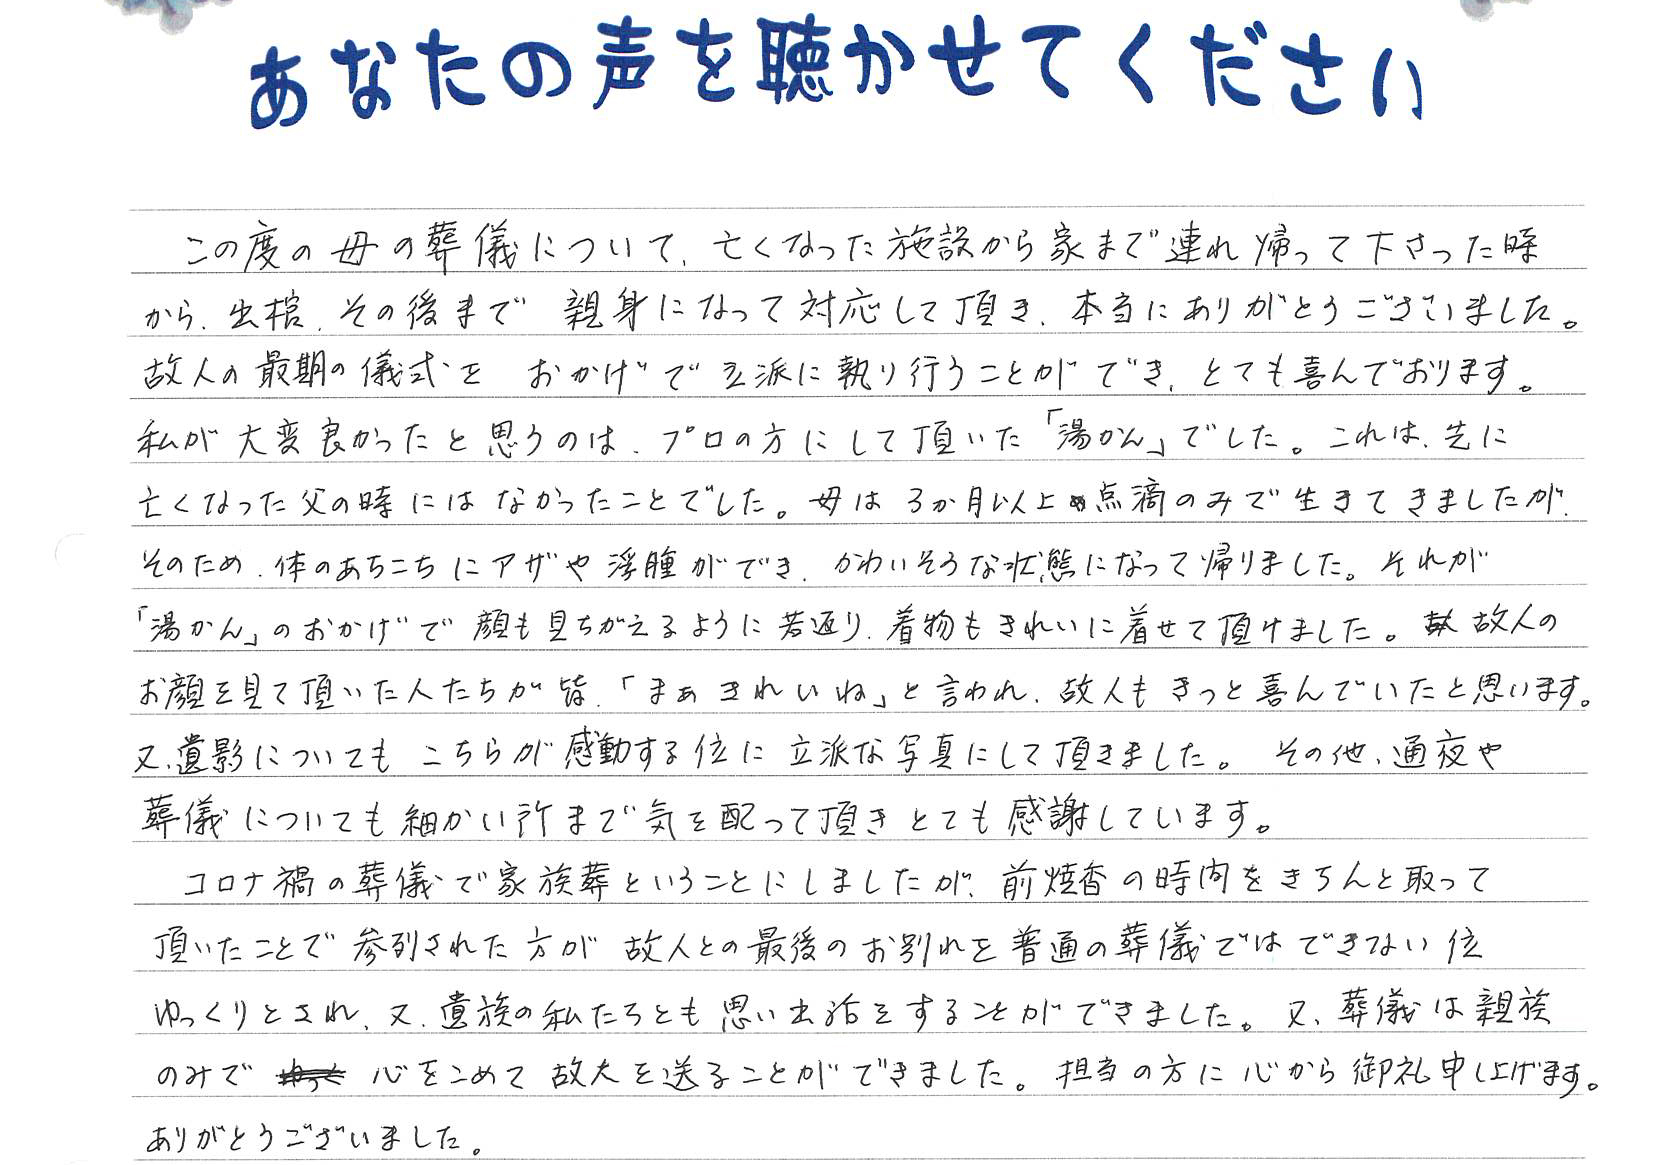 あなたの声を聴かせてください
この度の母の葬儀について、亡くなった施設から家まで連れ帰って下さった時
から、出棺、その後まで 親身になって対応して頂き、本当にありがとうございました。
故人の最期の儀式を おかげで立派に執り行うことができ、とても喜んでおります。
私が大変良かったと思うのは、プロの方にして頂いた「湯かん」でした。これは、先に
亡くなった父の時にはなかったことでした。母は3か月以上点滴のみで生きてきましたが、
そのため、体のあちこちにアザや浮腫ができ、かわいそうな状態になって帰りました。それが
「湯かん」のおかげで顔も見ちがえるように若返り、着物もきれいに着せて頂けました。故人の
お顔を見て頂いた人たちが皆、「まぁきれいね」と言われ、故人もきっと喜んでいたと思います。
又、遺影についても こちらが感動する位に立派な写真にして頂きました。その他、通夜や
葬儀についても細かい所まで気を配って頂きとても感謝しています。
コロナ禍の葬儀で家族葬ということにしましたが、前焼香の時間をきちんと取って
頂いたことで参列された方が 故人との最後のお別れを普通の葬儀ではできない位
ゆっくりとされ、又、遺族の私たちとも思い出話をすることができました。又、葬儀は親族
のみで 心をこめて故人を送ることができました。担当の方に心から御礼申し上げます。
ありがとうございました。